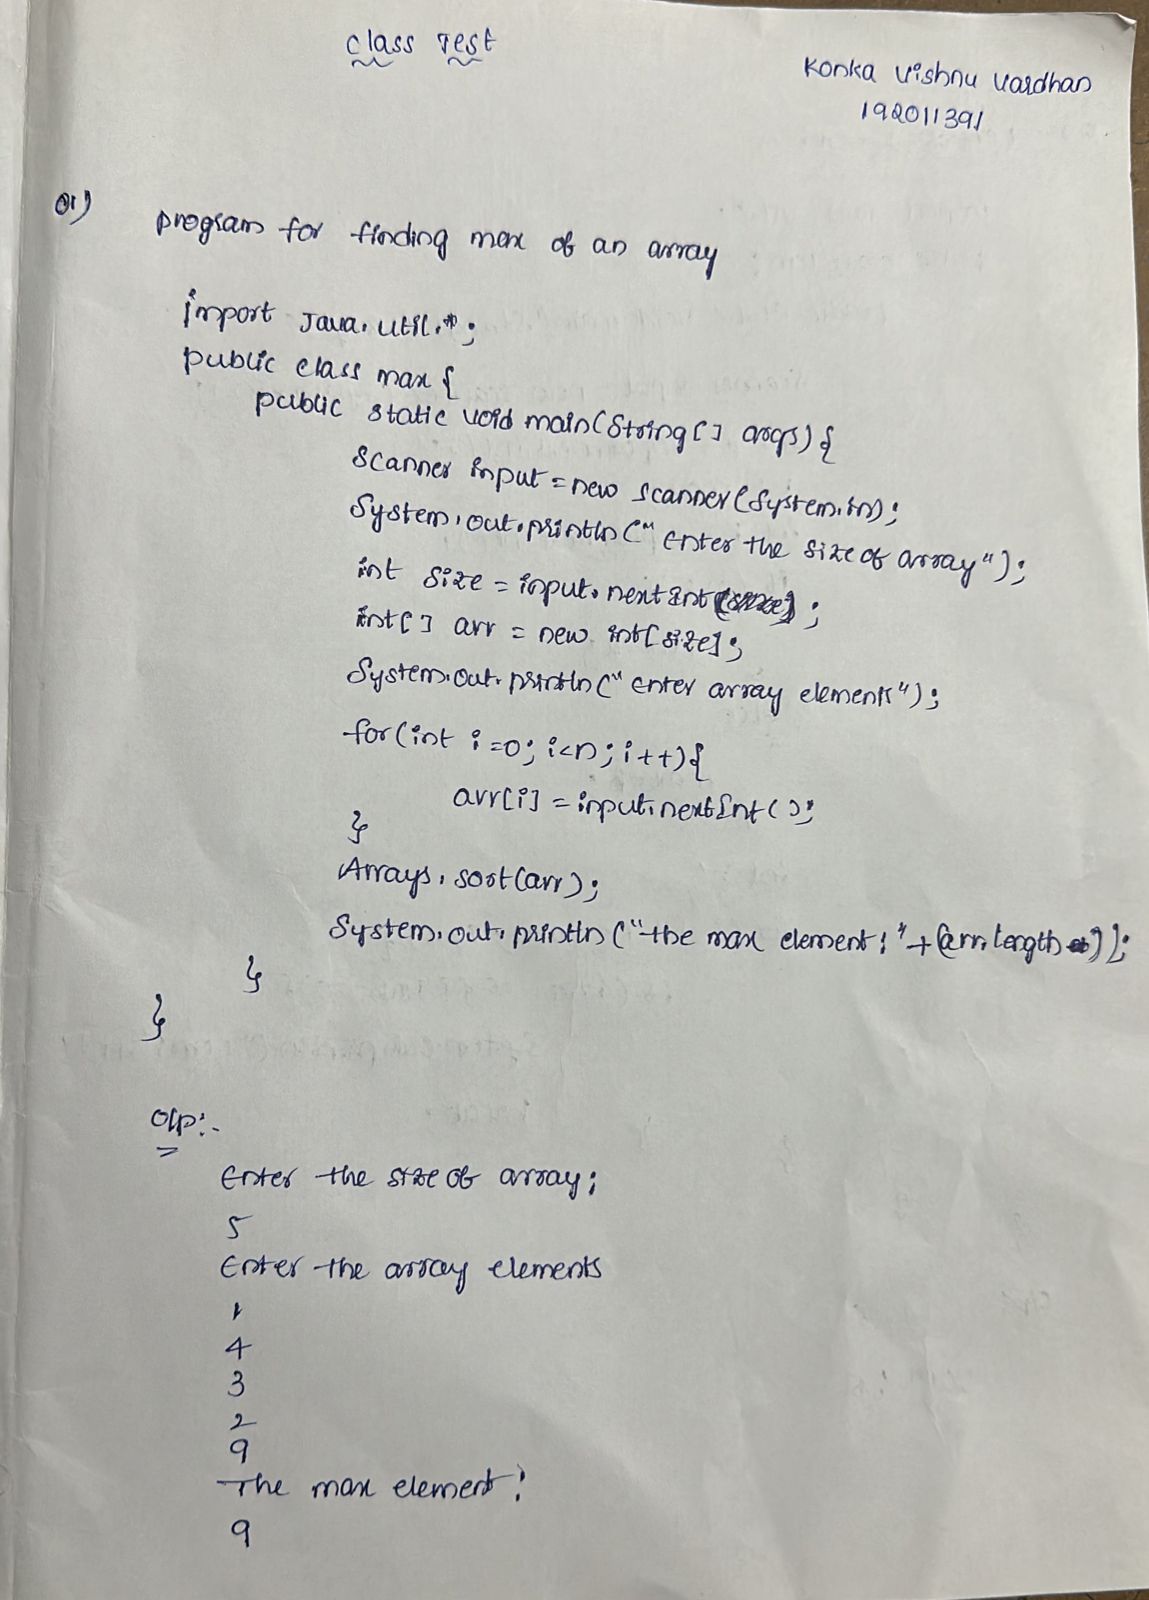 Class Test
Konka Vishnu Vardhan
192011391
01)
program for finding max of an array
import Java.util.*;
public class max {
public static void main(String[] args){
Scanner input = new scanner(System.in);
System.out.println("enter the size of array");
int size = input.nextInt();
int[] arr = new int[size];
System.out.println("enter array elements");
for(int i=0; i<n; i++){
arr[i] = input.nextInt();
}
Arrays.sort(arr);
System.out.println("the max element:"+(arr.length));
}
}
O/p:-
Enter the size of array;
5
Enter the array elements
1
4
3
2
9
The max element:
9